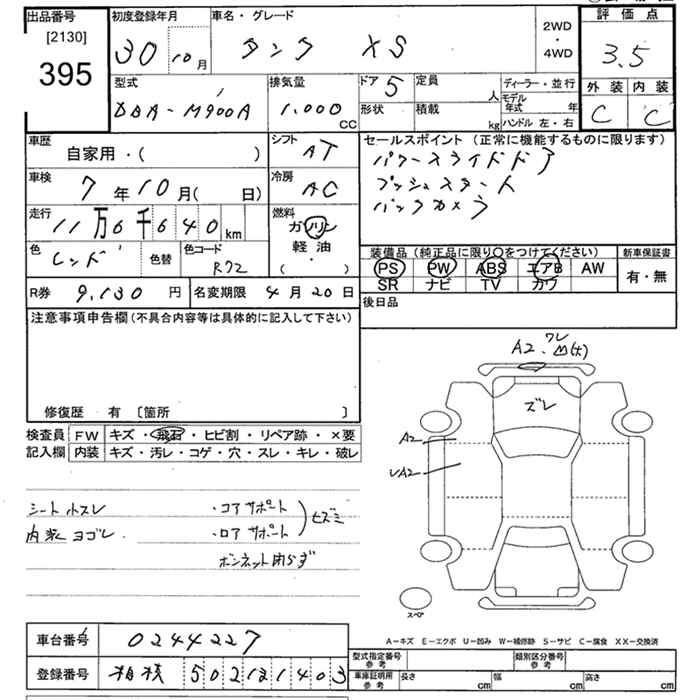 出品番号
[2130]
395
初度登録年月
30 10月
車名・グレード
タンク XS
2WD
・
4WD
評価点
3.5
外装 内装
C C
型式
DBA-M900A
排気量
1,000 CC
ドア 5
形状
定員 人
積載 kg
ディーラー・並行
モデル年式 年
ハンドル 左・右
車歴
自家用・( )
シフト
AT
車検
7年10月( 日)
冷房
AC
走行
11万6千640 km
燃料
ガソリン
軽油
( )
色
レッド
色替
色コード
R72
セールスポイント (正常に機能するものに限ります)
パワースライドドア
プッシュスタート
バックカメラ
装備品 (純正品に限り○をつけてください)
PS PW ABS エアB AW
SR ナビ TV カワ
新車保証書
有・無
R券 9,130 円
名変期限 4月20日
後日品
注意事項申告欄(不具合内容等は具体的に記入して下さい)
修復歴 有 [箇所 ]
検査員
記入欄
FW キズ・飛石・ヒビ割・リペア跡・×要
内装 キズ・汚レ・コゲ・穴・スレ・キレ・破レ
シート ホスレ
内装 ヨゴレ
・コアサポート
・ロアサポート
ヒズミ
ボンネット閉らず
ワレ
A2・凹(大)
ズレ
A2
A2
スペア
A-キズ E-エクボ U-凹み W-補修跡 S-サビ C-腐食 XX-交換済
車台番号 0244227
登録番号 相模 502 1403
型式指定番号
参考
類別区分番号
参考
車庫証明用
参考
長さ cm
幅 cm
高さ cm